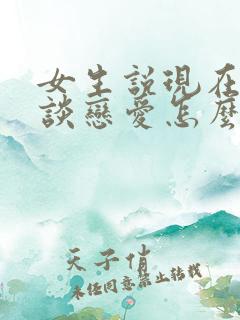 女生說現在
談戀愛怎麼
天子俏
未經同意禁止轉載